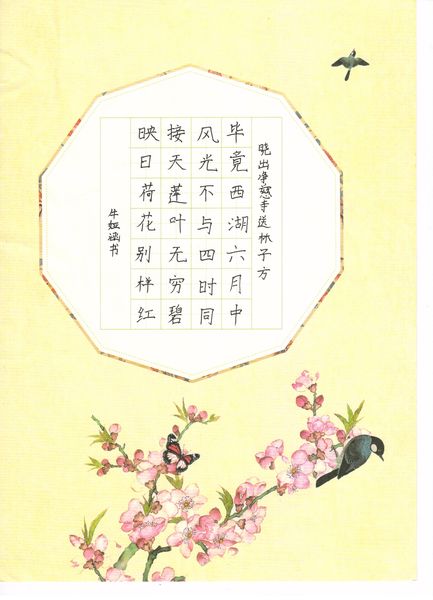 晓出净慈寺送林子方
毕竟西湖六月中
风光不与四时同
接天莲叶无穷碧
映日荷花别样红
牛娅涵书